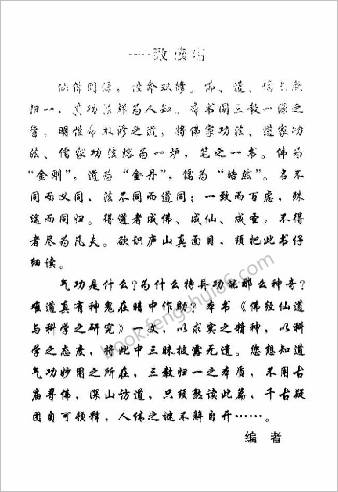 仙佛同源,性命双修。佛、道、儒三教
归一,其功法鲜为人知。本书阐三教一源之
旨,明性命双修之道,将佛家功法、道家功
法、儒家功法熔为一炉,笔之一书。佛为
“金刚”,道为“金丹”,儒为“浩然”。名不
同而义同,法不同而道同;一致而百虑,殊
途而同归。得道者成佛、成仙、成圣,不得
者尽为凡夫。欲识庐山真面目,须把此书仔
细读。
气功是什么?为什么特异功能那么神奇?
难道真有神鬼在暗中作助?本书《佛经仙道
与科学之研究》一文,以求实之精神,以科
学之态度,将此中三昧披露无遗。您想知道
气功妙用之所在,三教归一之本质,不用古
庙寻佛,深山访道,只须熟读此篇,千古疑
团自可领释,人体之谜不解自开……。
编 者
book.fengshui66.com